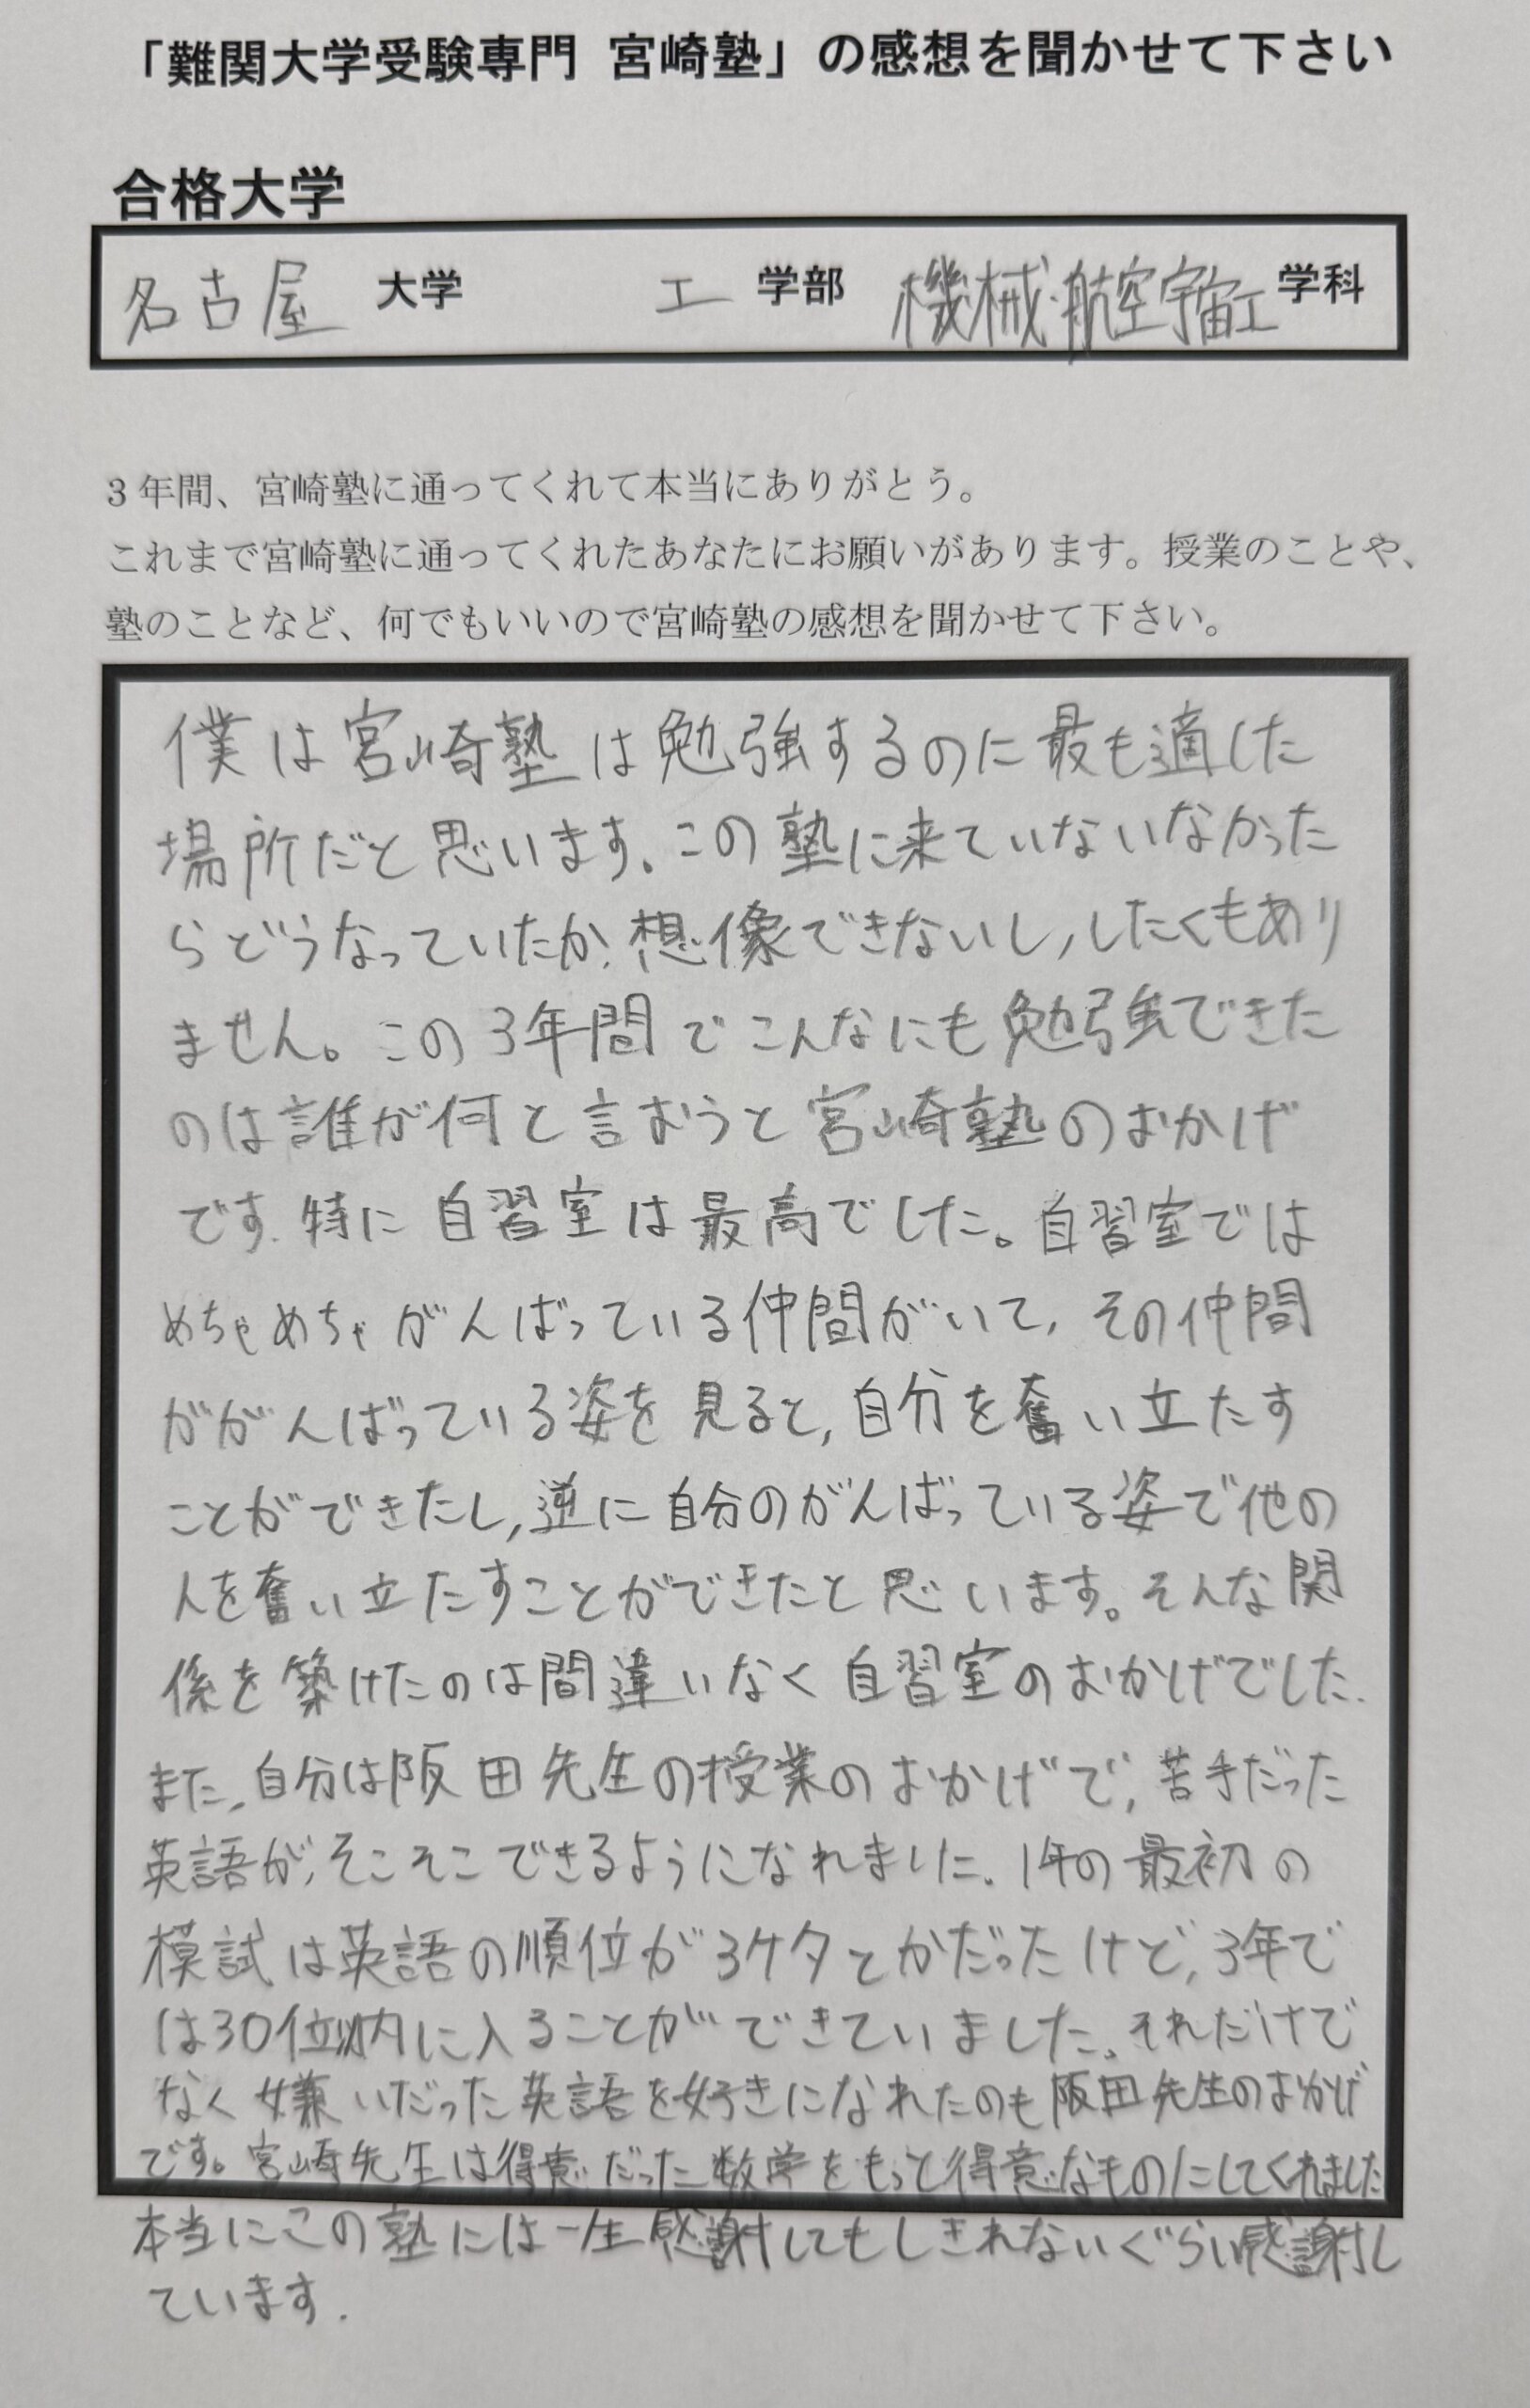 「難関大学受験専門 宮崎塾」の感想を聞かせて下さい
合格大学
名古屋 大学 工 学部 機械・航空宇宙工 学科
3年間、宮崎塾に通ってくれて本当にありがとう。
これまで宮崎塾に通ってくれたあなたにお願いがあります。授業のことや、
塾のことなど、何でもいいので宮崎塾の感想を聞かせて下さい。
僕は宮崎塾は勉強するのに最も適した
場所だと思います。この塾に来ていないなかった
らどうなっていたか、想像できないし,したくもあり
ません。この3年間でこんなにも勉強できた
のは誰が何と言おうと宮崎塾のおかげ
です.特に自習室は最高でした。自習室では
めちゃめちゃがんばっている仲間がいて,その仲間
ががんばっている姿を見ると,自分を奮い立たす
ことができたし,逆に自分のがんばっている姿で他の
人を奮い立たすことができたと思います。そんな関
係を築けたのは間違いなく自習室のおかげでした.
また,自分は阪田先生の授業のおかげで,苦手だった
英語が,そこそこできるようになれました.1年の最初の
模試は英語の順位が3ケタとかだったけど,3年で
は30位以内に入ることができていました.それだけで
なく嫌いだった英語を好きになれたのも阪田先生のおかげ
です。宮崎先生は得意だった数学をもっと得意なものにしてくれました
本当にこの塾には一生感謝してもしきれないぐらい感謝し
ています.